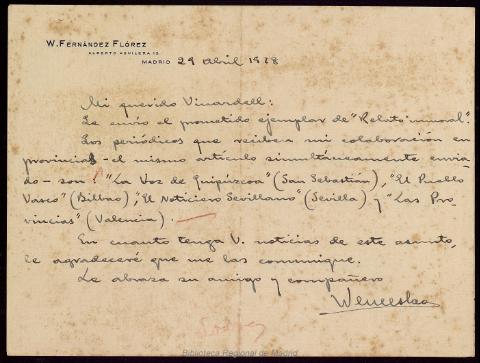 W. FERNÁNDEZ FLÓREZ
ALBERTO AGUILERA 12
MADRID 29 Abril 1928
Mi querido Vinardell:
Le envío el prometido ejemplar de "Relato inmoral".
Los periódicos que reciben mi colaboración en
provincias - el mismo artículo simultáneamente envia-
do - son: "La Voz de Guipúzcoa" (San Sebastián), "El Pueblo
Vasco" (Bilbao), "El Noticiero Sevillano" (Sevilla) y "Las Pro-
vincias" (Valencia).
En cuanto tenga V. noticias de este asunto,
le agradeceré que me las comunique.
Le abraza su amigo y compañero
Wenceslao
Biblioteca Regional de Madrid